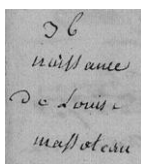 36
naissance
de Louise
massoteau